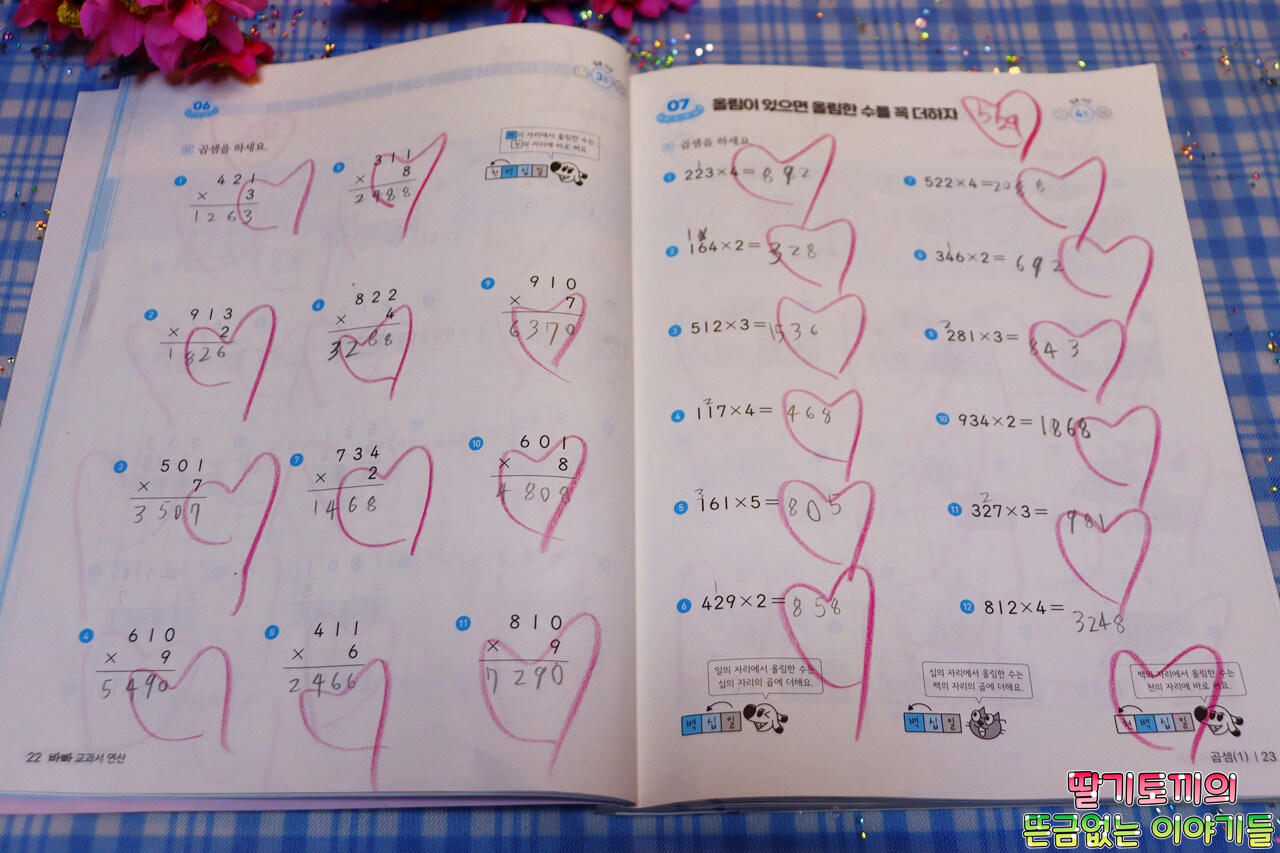 06
3
곱셈을 하세요.
백의 자리에서 올림한 수는
천의 자리에 바로 써요.
천 백 십 일
1
421
× 3
1263
5
311
× 8
2488
2
913
× 2
1826
6
822
× 4
3288
9
910
× 7
6370
3
501
× 7
3507
7
734
× 2
1468
10
601
× 8
4808
4
610
× 9
5490
8
411
× 6
2466
11
810
× 9
7290
22 바빠 교과서 연산
07 올림이 있으면 올림한 수를 꼭 더하자
559
4
곱셈을 하세요.
1 223×4=892
1
7 522×4=2088
2 164×2=328
1
8 346×2=692
3 512×3=1536
2
9 281×3=843
2
4 117×4=468
10 934×2=1868
3
5 161×5=805
2
11 327×3=981
1
6 429×2=858
12 812×4=3248
일의 자리에서 올림한 수는
십의 자리의 곱에 더해요.
백 십 일
십의 자리에서 올림한 수는
백의 자리의 곱에 더해요.
백 십 일
백의 자리에서 올림한 수는
천의 자리에 바로 써요.
천 백 십 일
곱셈(1) | 23
딸기토끼의
뜬금없는 이야기들